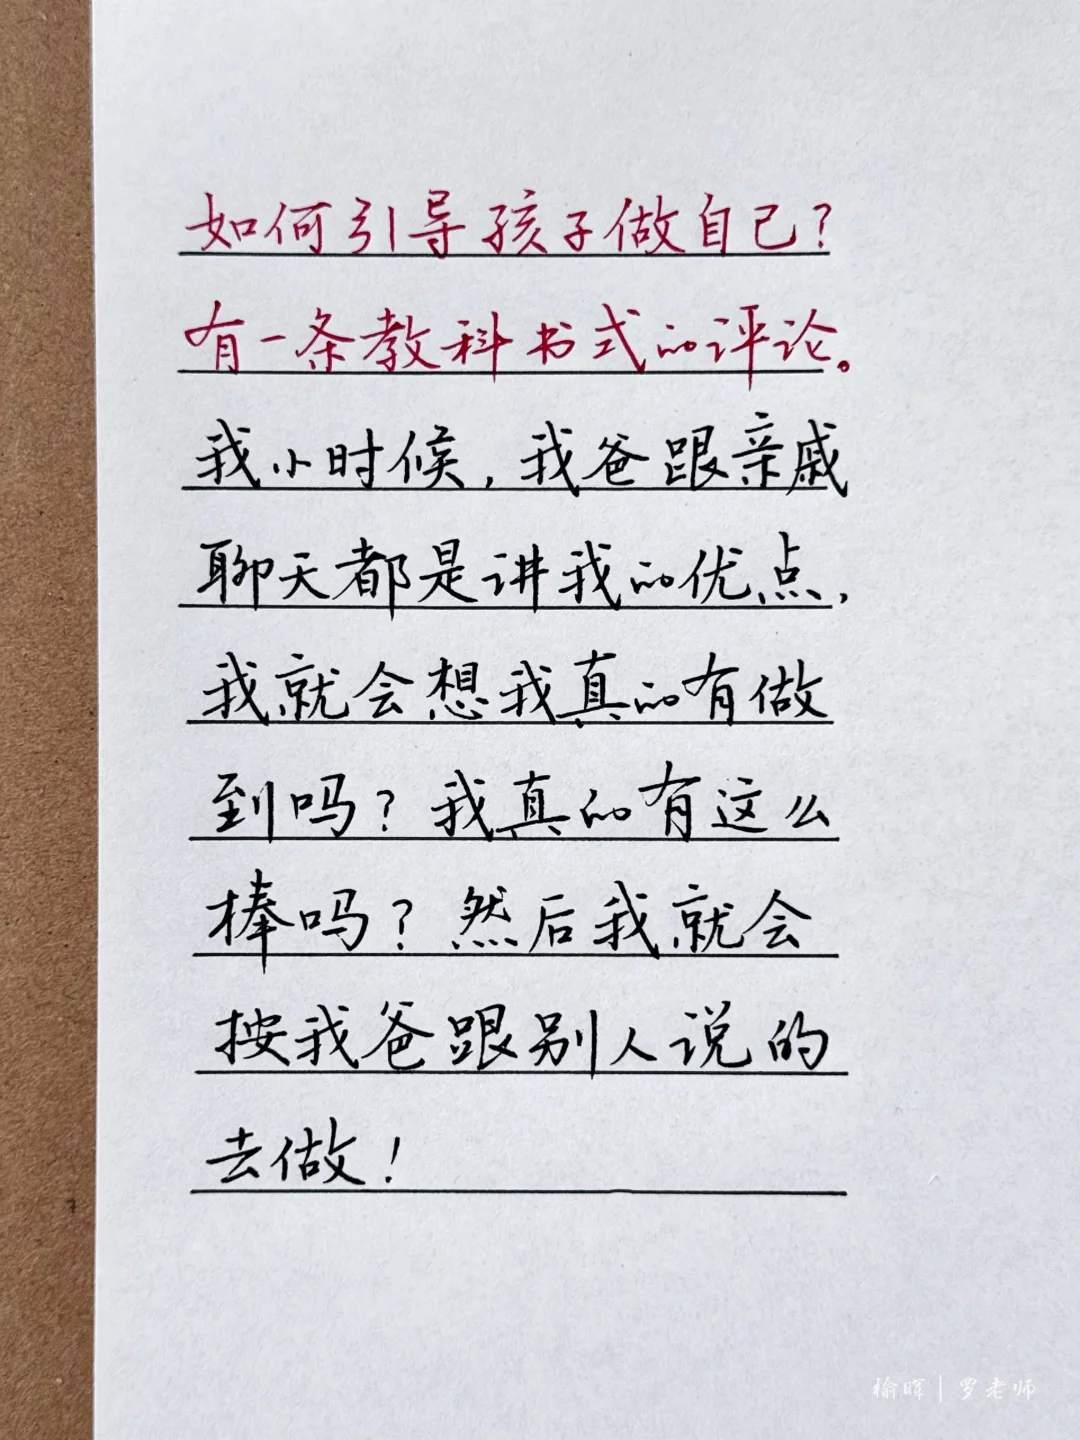 如何引导孩子做自己?
有一条教科书式的评论。
我小时候,我爸跟亲戚
聊天都是讲我的优点,
我就会想我真的有做
到吗?我真的有这么
棒吗?然后我就会
按我爸跟别人说的
去做!
榆晖|罗老师